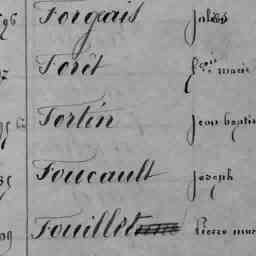 596 Forgeais Jules
Forêt fçois marie
Fortin Jean baptis
Foucault Joseph
Fouillet Pierre mar